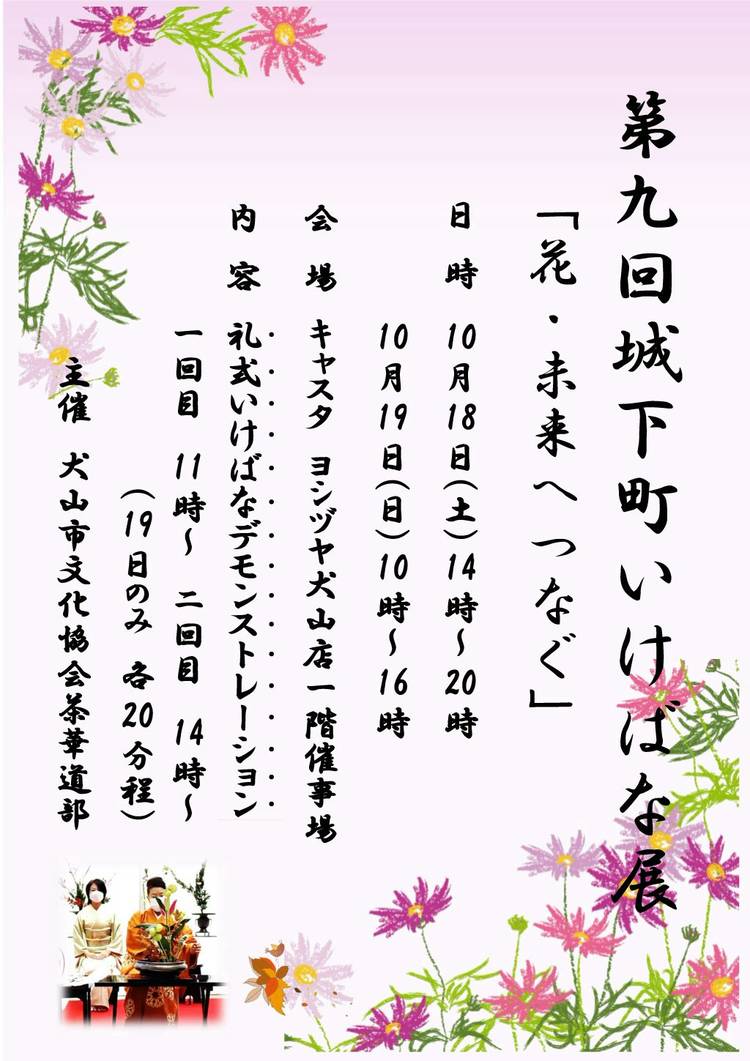 第九回城下町いけばな展
「花・未来へつなぐ」
日時 10月18日(土)14時〜20時
10月19日(日)10時〜16時
会場 キャスタ ヨシヅヤ犬山店一階催事場
内容 礼式いけばなデモンストレーション
一回目 11時〜 二回目 14時〜
(19日のみ 各20分程)
主催 犬山市文化協会茶華道部